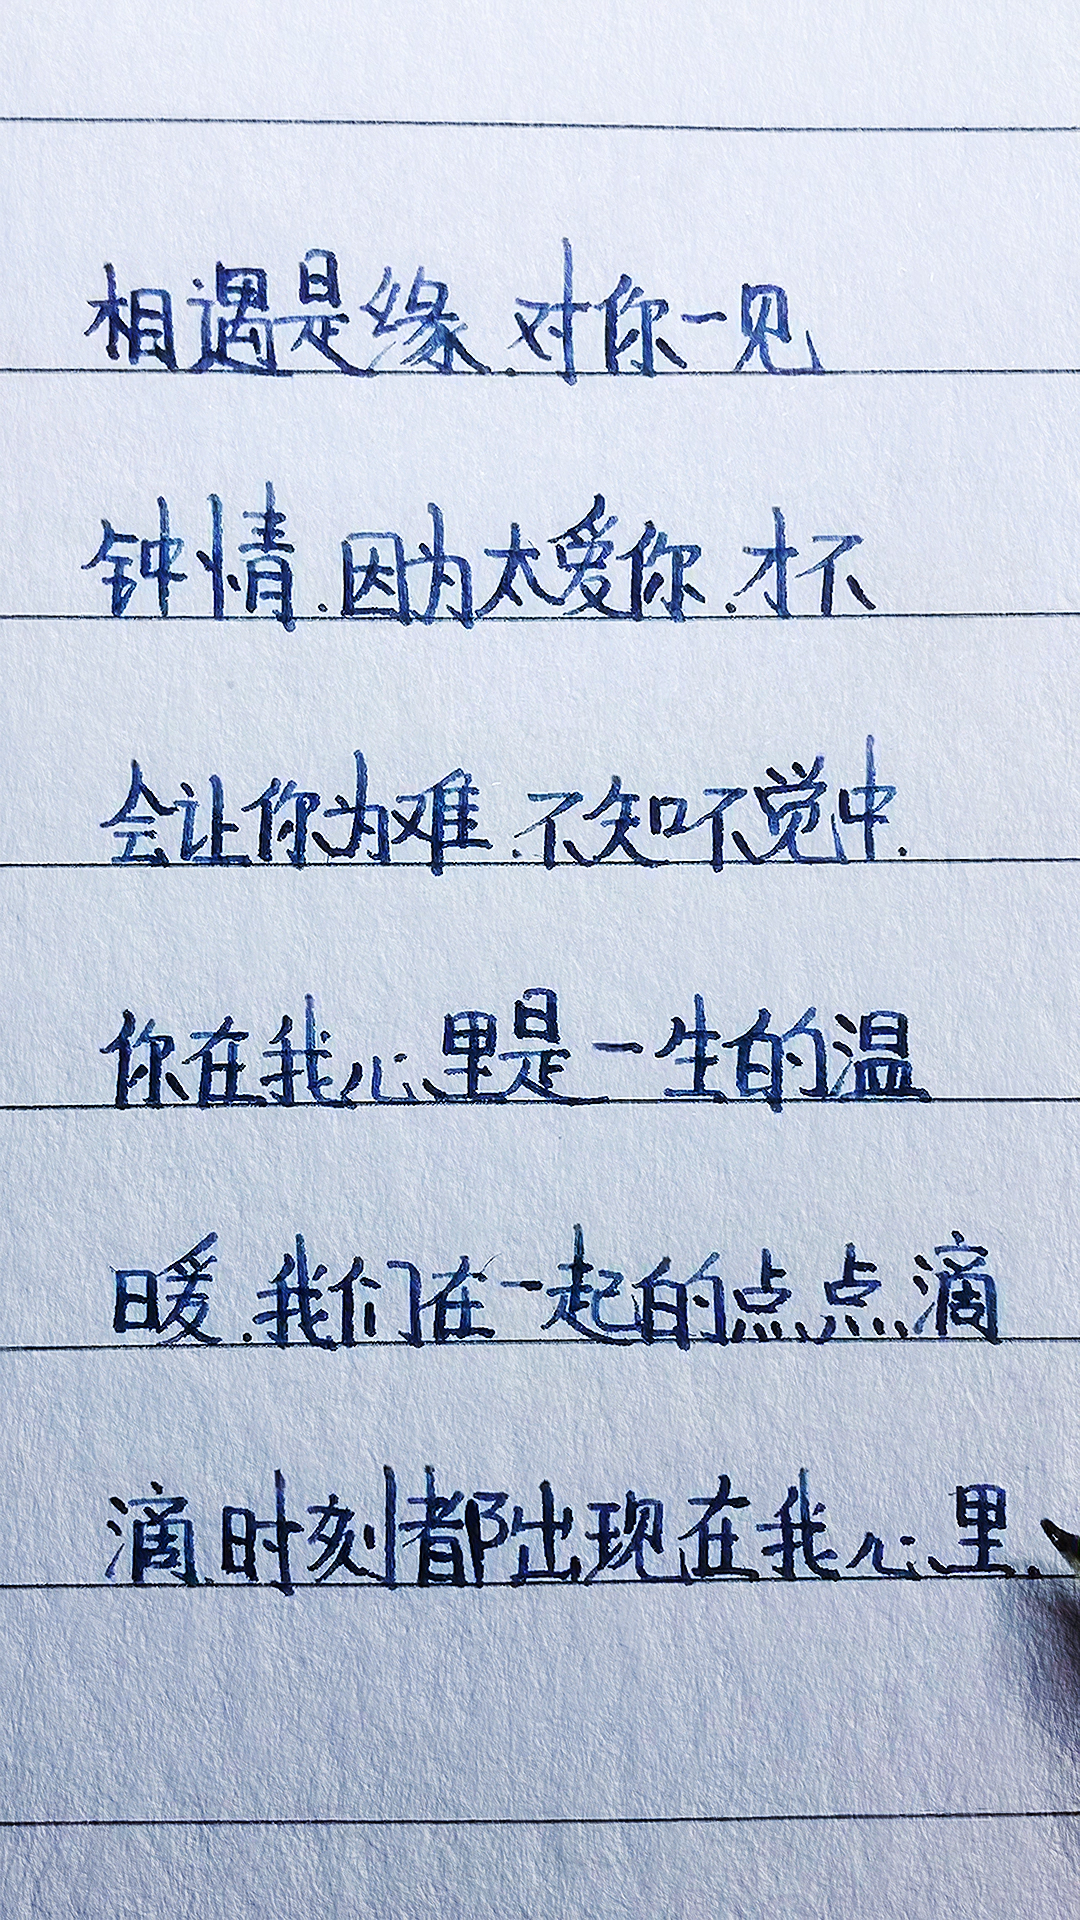 相遇是缘.对你一见
钟情.因为太爱你.才不
会让你为难.不知不觉中.
你在我心里是一生的温
暖.我们在一起的点点滴
滴.时刻都出现在我心里.